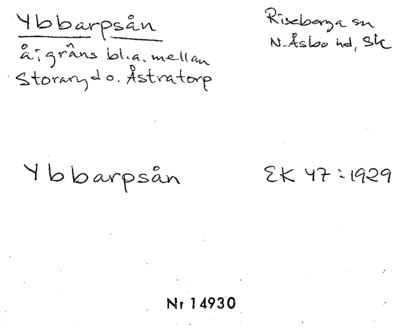 Ybbarpsån
Riseberga sn
N. Åsbo hd, Sk
å; gräns bl.a. mellan
Storaryd o. Åstratorp
Ybbarpsån
EK 47:1929
Nr 14930